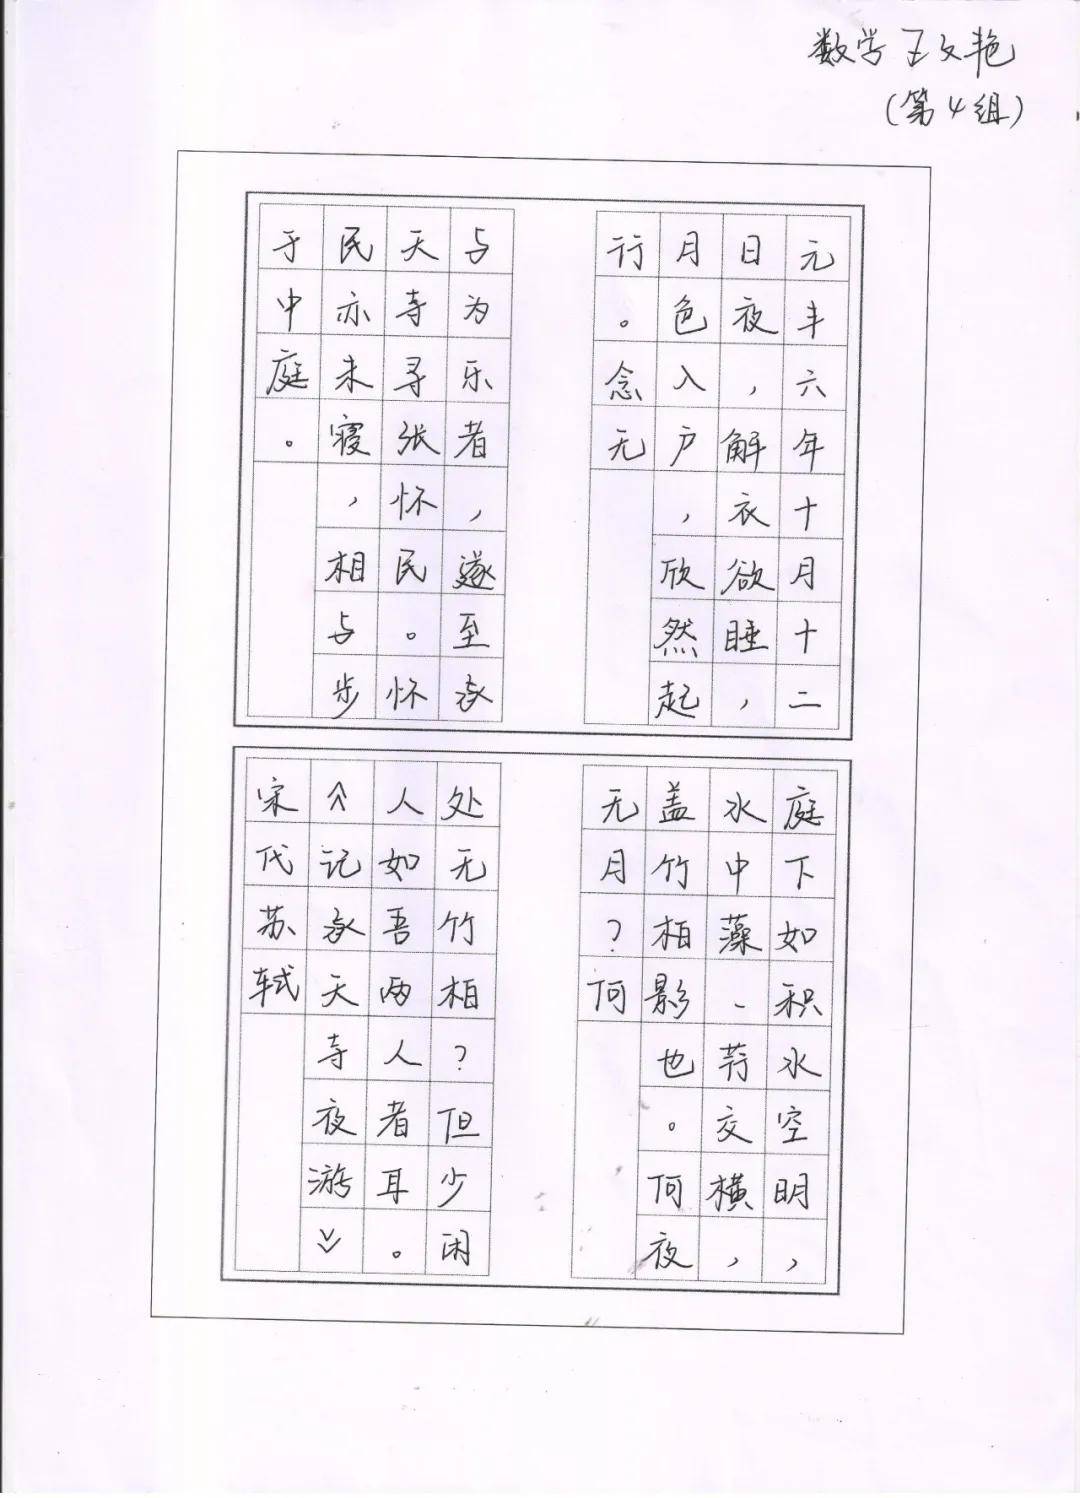 数学 王文艳
（第4组）
元丰六年十月十二
日夜，解衣欲睡，
月色入户，欣然起
行。念无
与为乐者，遂至承
天寺寻张怀民。怀
民亦未寝，相与步
于中庭。
庭下如积水空明，
水中藻、荇交横，
盖竹柏影也。何夜
无月？何
处无竹柏？但少闲
人如吾两人者耳。
《记承天寺夜游》
宋代苏轼